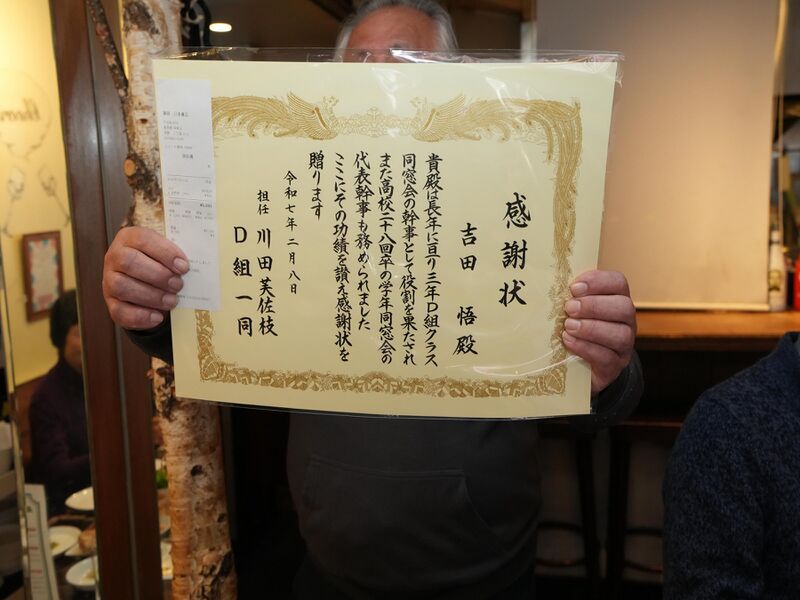 感謝状
吉田 悟殿
貴殿は長年に亘り三年D組クラス
同窓会の幹事として役割を果たされ
また高校二十八回卒の学年同窓会の
代表幹事も務められました
ここにその功績を讃え感謝状を
贈ります
令和七年二月八日
担任 川田芙佐枝
D組一同